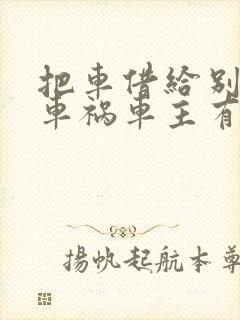 把車借給別
車禍車主有
揚帆起航本尊